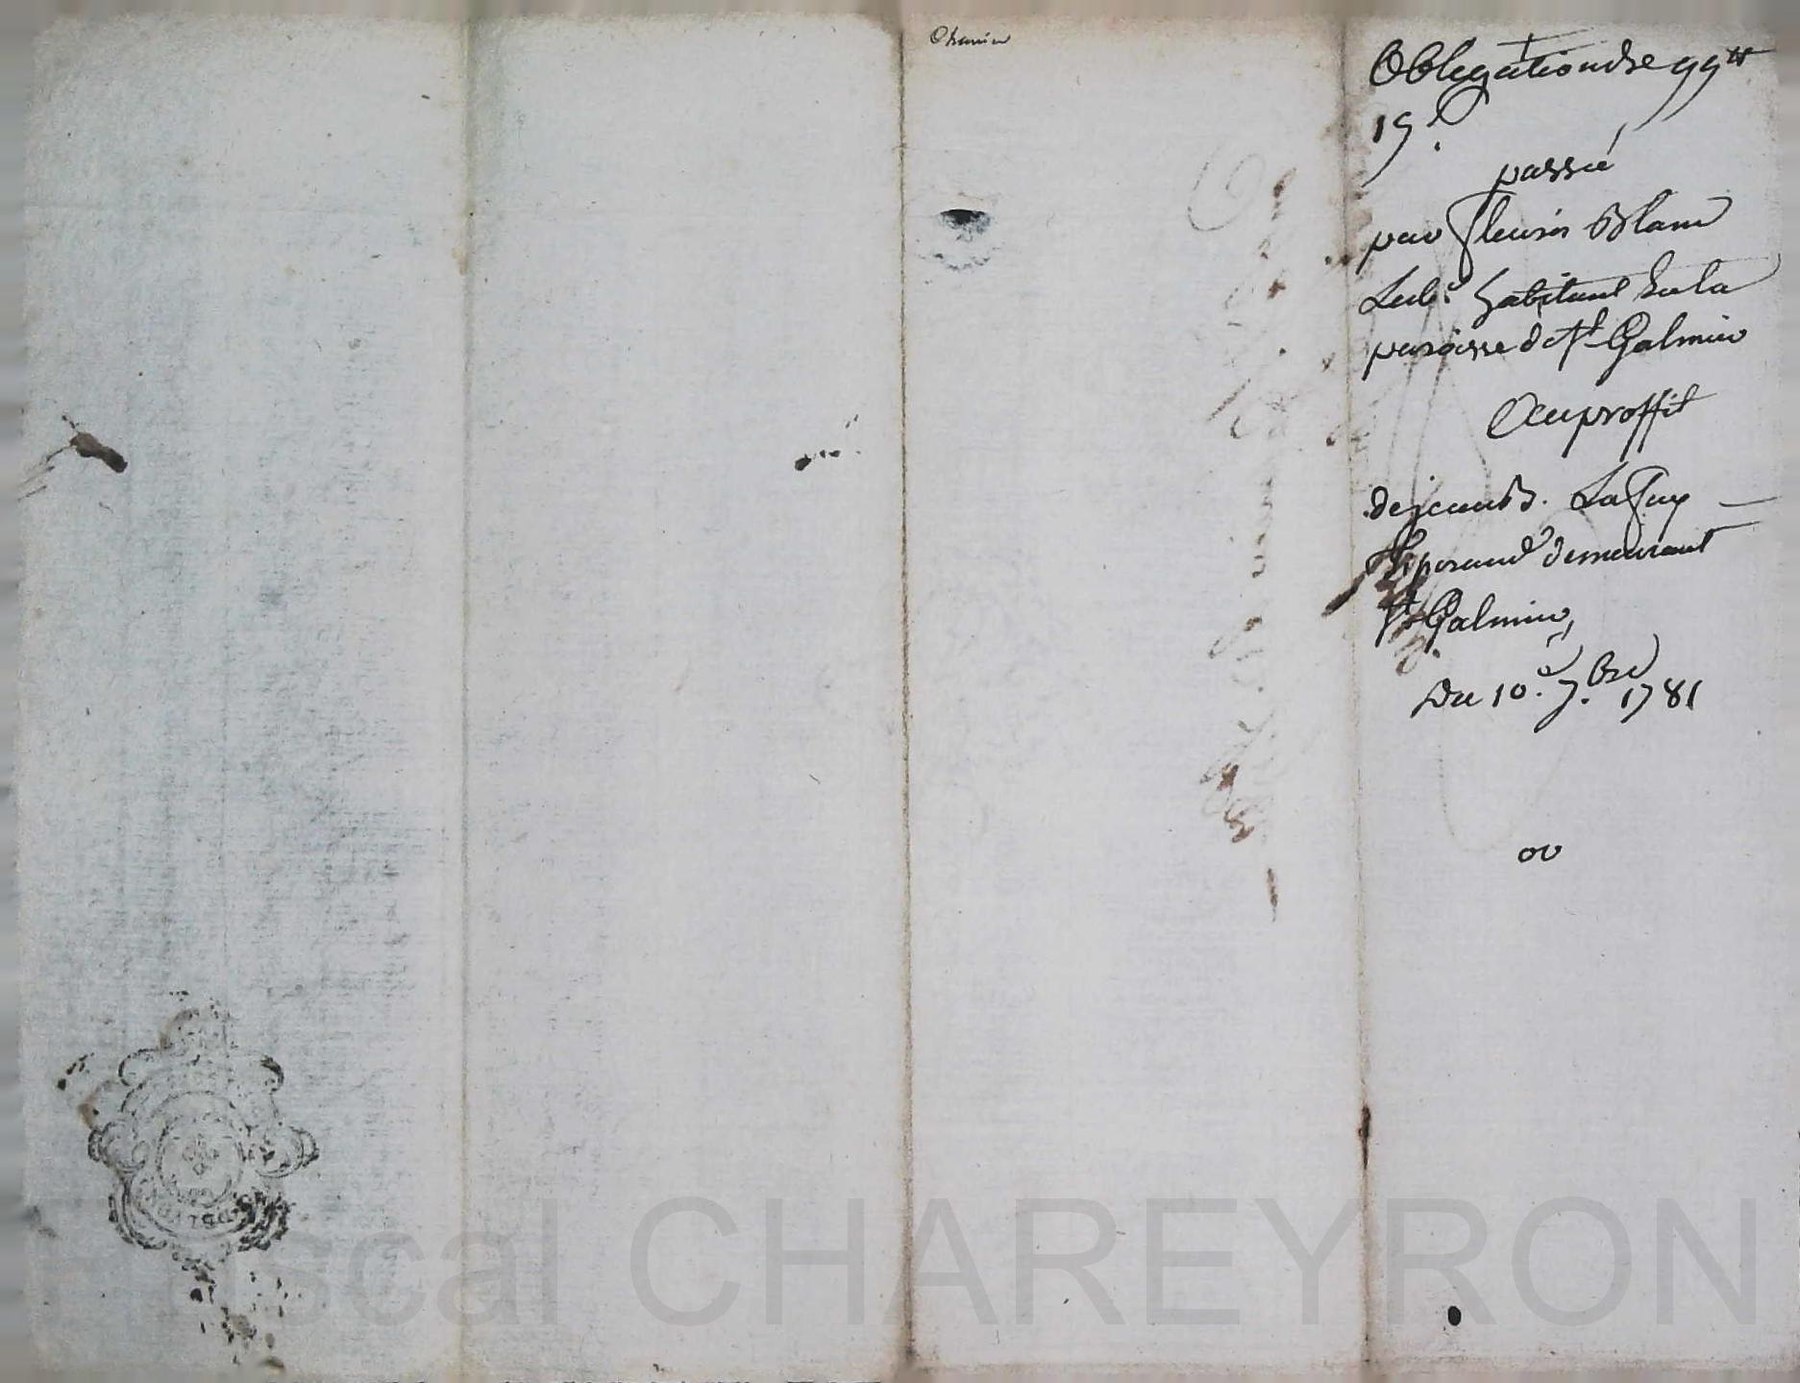 Obligation de 99tt
19s.
passée
par Fleury Blanc
habitant de la
paroisse de St Galmier
Au proffit
de jean B. Lafay
demeurant
St Galmier,
Du 10e. 7.bre 1781
Pascal CHAREYRON